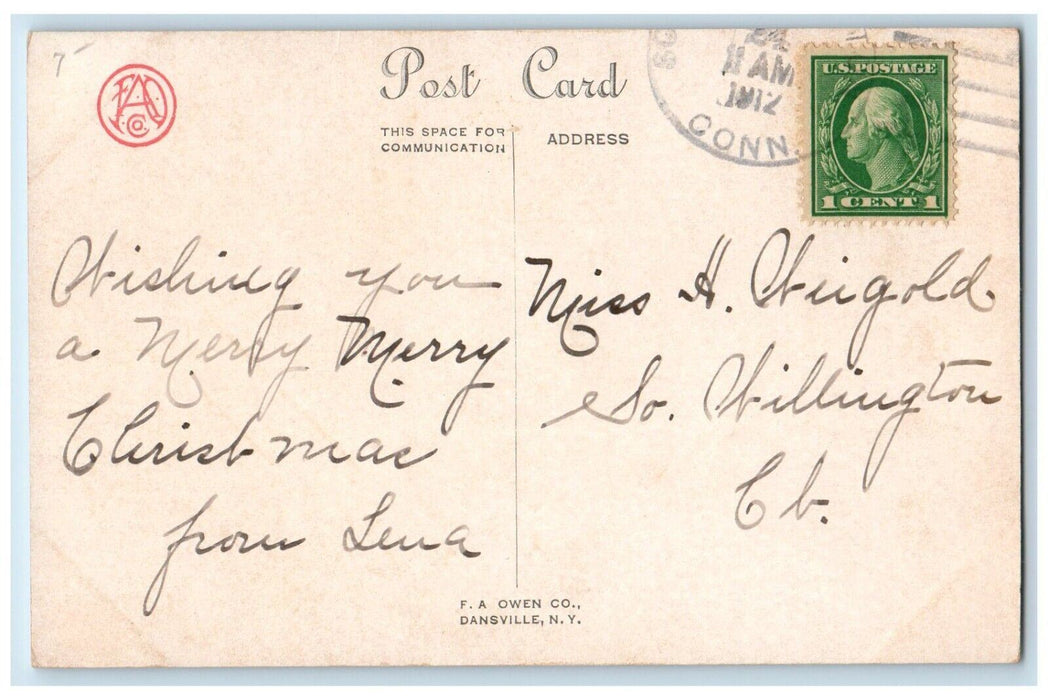 7
FAO Co.
Post Card
THIS SPACE FOR COMMUNICATION
ADDRESS
11 AM
1912
CONN.
U.S. POSTAGE
1 CENT 1
Wishing you
a Merry Merry
Christmas
from Lena
Miss H. Weigold
So. Willington
Ct.
F. A OWEN CO.,
DANSVILLE, N. Y.